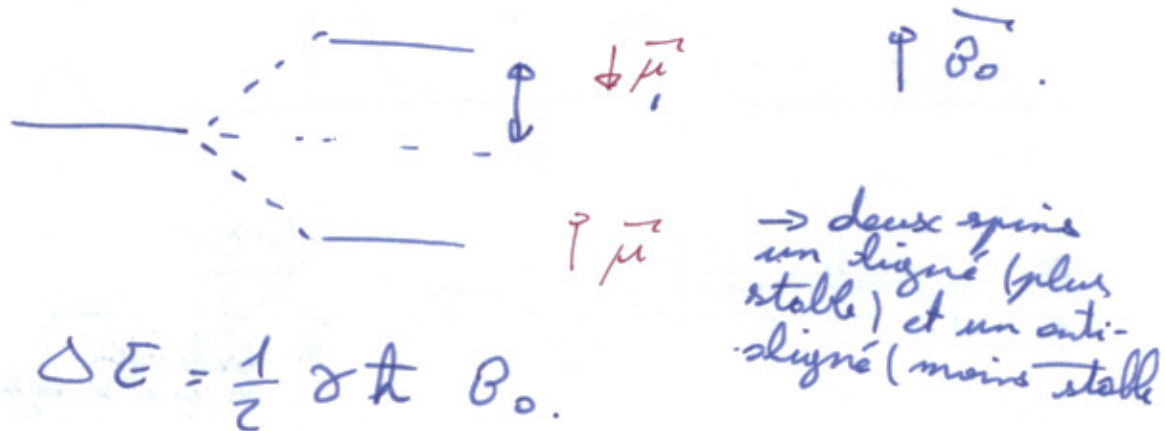 ↓ μ⃗
↑ B⃗₀ .
↑ μ⃗
→ deux spins
un ligné (plus
stable) et un anti-
aligné (moins stable
ΔE = 1/2 γ ħ B₀.